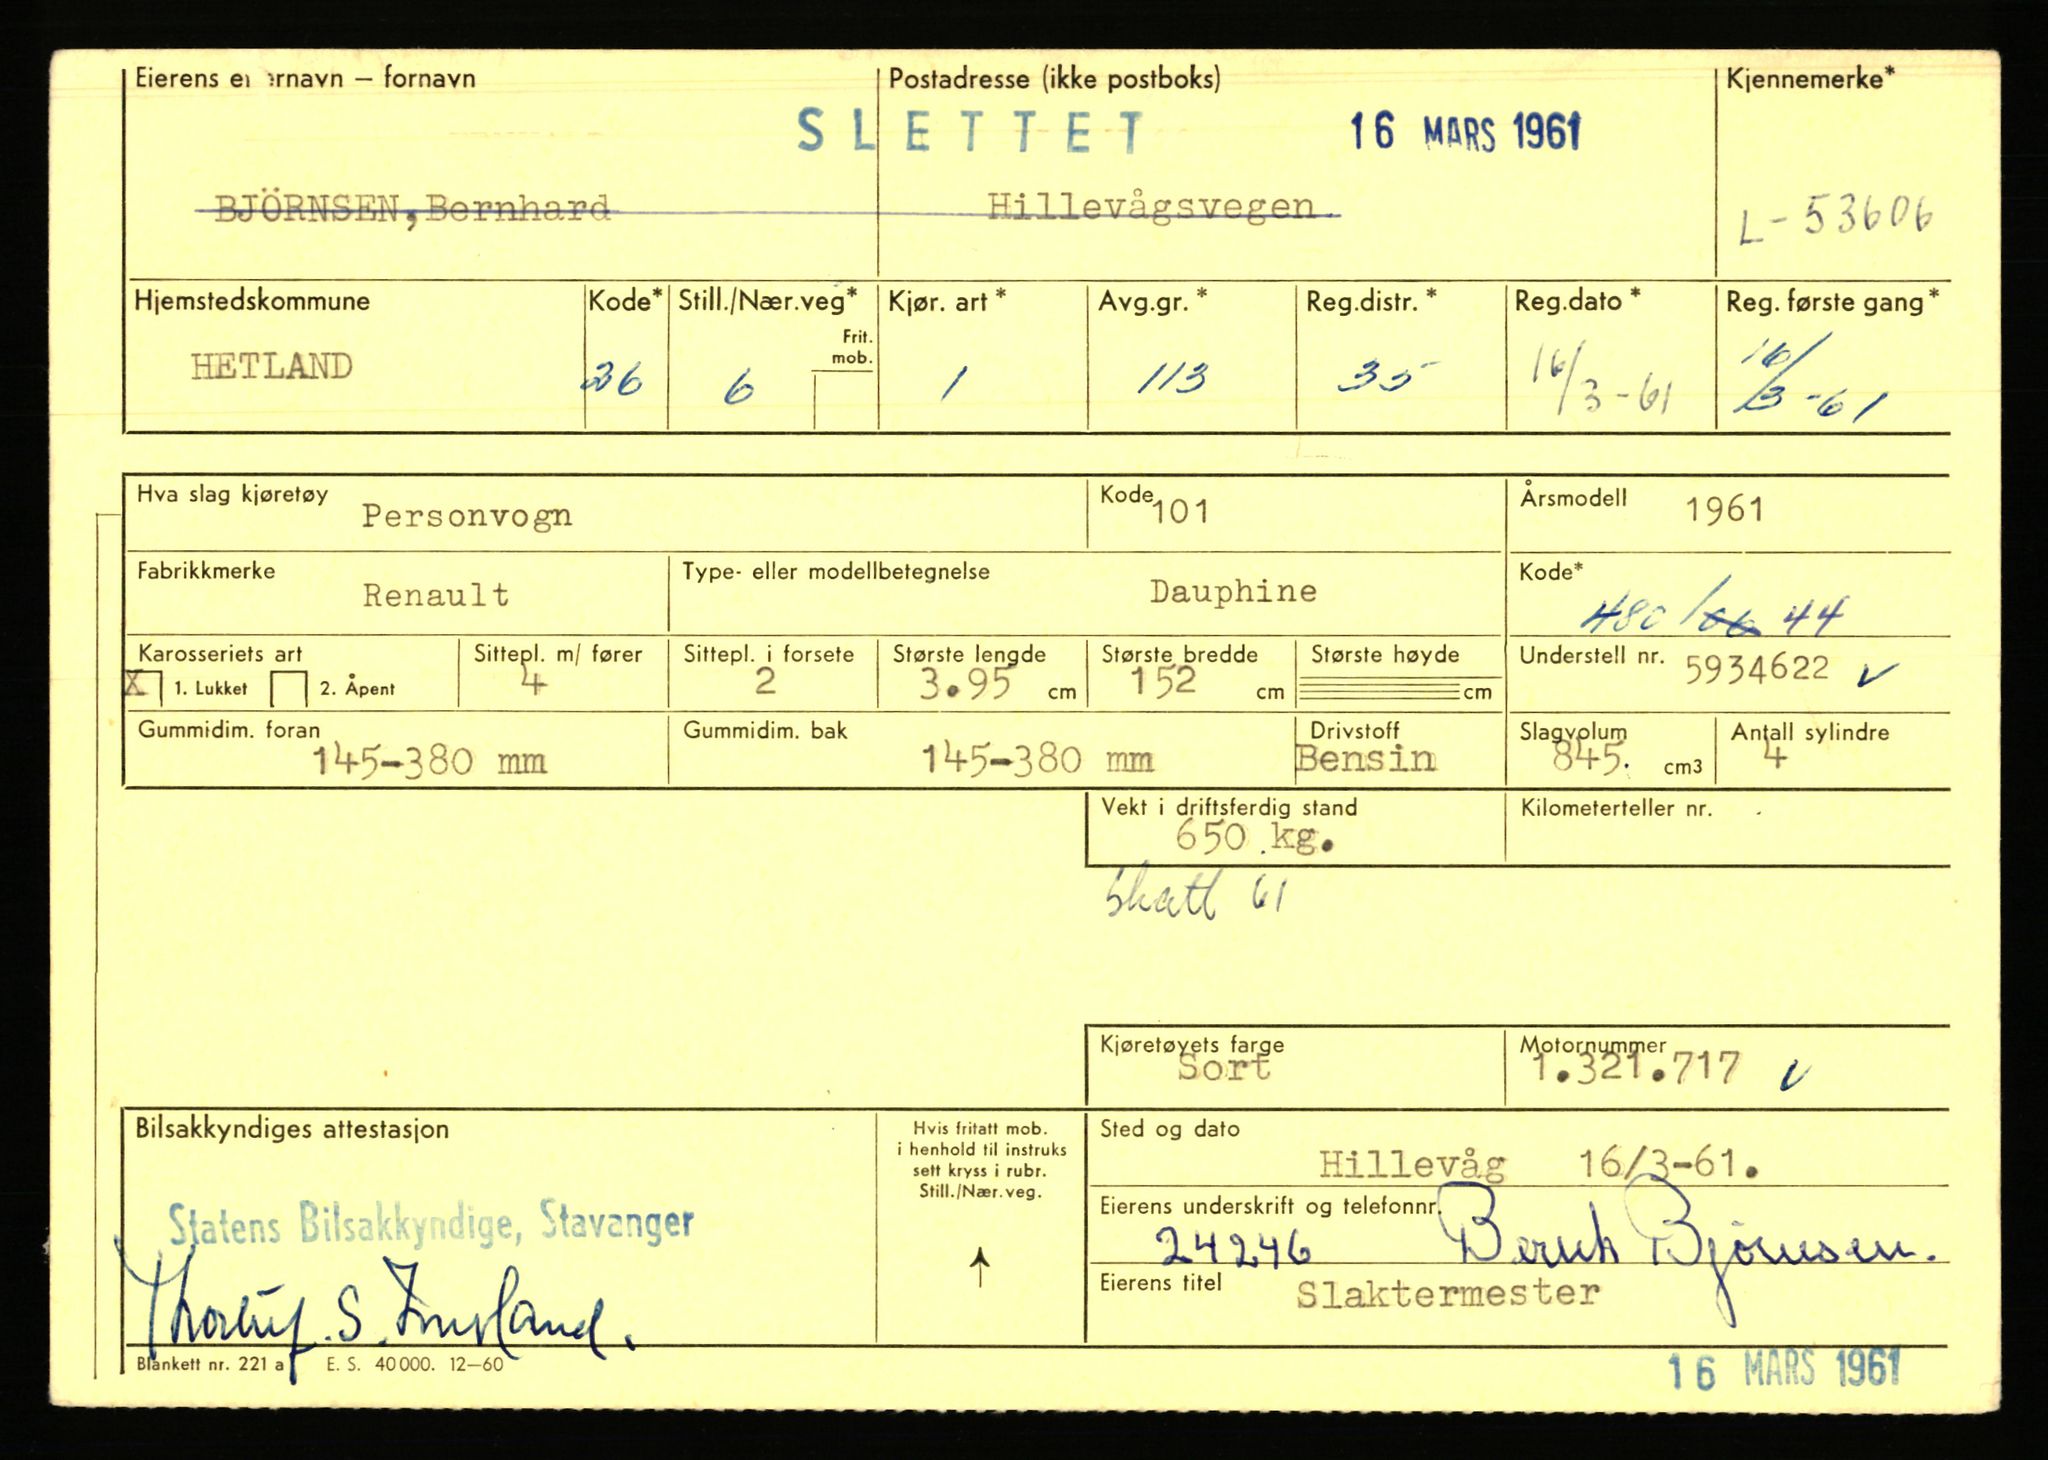 Eierens et ernavn – fornavn Postadresse (ikke postboks) Kjennemerke*
SLETTET 16 MARS 1961
BJÖRNSEN, Bernhard Hillevågsvegen. L-53606
Hjemstedskommune Kode* Still./Nær.veg* Kjør. art* Avg.gr.* Reg.distr.* Reg.dato* Reg. første gang*
Frit. mob.
HETLAND 26 6 1 113 35 16/3-61 16/3-61
Hva slag kjøretøy Personvogn Kode 101 Årsmodell 1961
Fabrikkmerke Renault Type- eller modellbetegnelse Dauphine Kode*
480/66 44
Karosseriets art Sittepl. m/ fører Sittepl. i forsete Største lengde Største bredde Største høyde Understell nr. 5934622
X 1. Lukket 2. Åpent 4 2 3.95 cm 152 cm cm
Gummidim. foran Gummidim. bak Drivstoff Slagvolum Antall sylindre
145-380 mm 145-380 mm Bensin 845. cm3 4
Vekt i driftsferdig stand Kilometerteller nr.
650 kg.
Skatt 61
Kjøretøyets farge Motornummer
Sort 1.321.717
Bilsakkyndiges attestasjon Hvis fritatt mob. Sted og dato
i henhold til instruks
sett kryss i rubr. Hillevåg 16/3-61.
Still./Nær.veg.
Statens Bilsakkyndige, Stavanger Eierens underskrift og telefonnr.
24246 Bernh Bjørnsen.
Eierens titel Slaktermester
Blankett nr. 221 a E. S. 40000. 12–60
16 MARS 1961